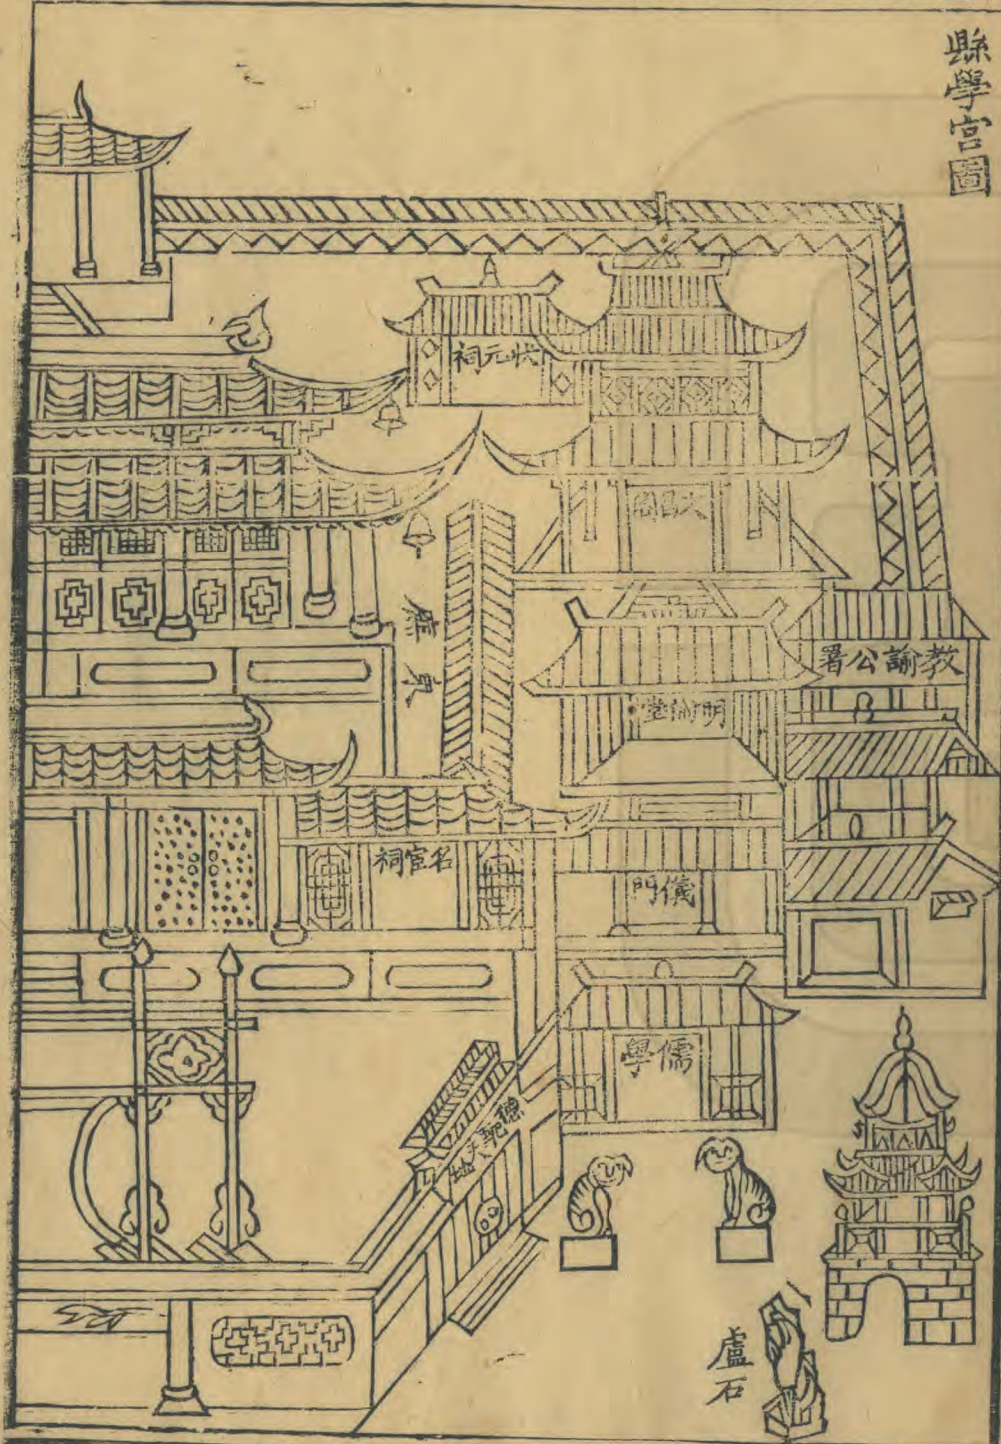 縣學宮圖
狀元祠
文昌閣
教諭公署
明倫堂
應泉
名宦祠
儀門
儒學
德配天地
盧石